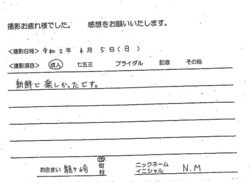 撮影お疲れ様でした。　感想をお願いいたします。
＜撮影日時＞ 令和2年 4月 5日(日)
＜撮影項目＞ 成人　七五三　ブライダル　記念　その他
新鮮で楽しかったです。
お住まい 龍ヶ崎 市町村　ニックネーム イニシャル N.M